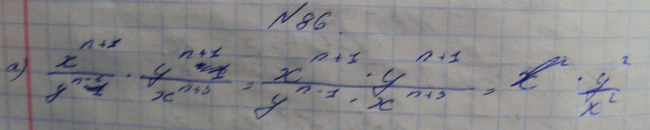 N86.
а) x^{n+1}/y^{n-1} · y^{n+1}/x^{n+3} = x^{n+1} · y^{n+1}/y^{n-1} · x^{n+3} = x^2 · y^2/x^2